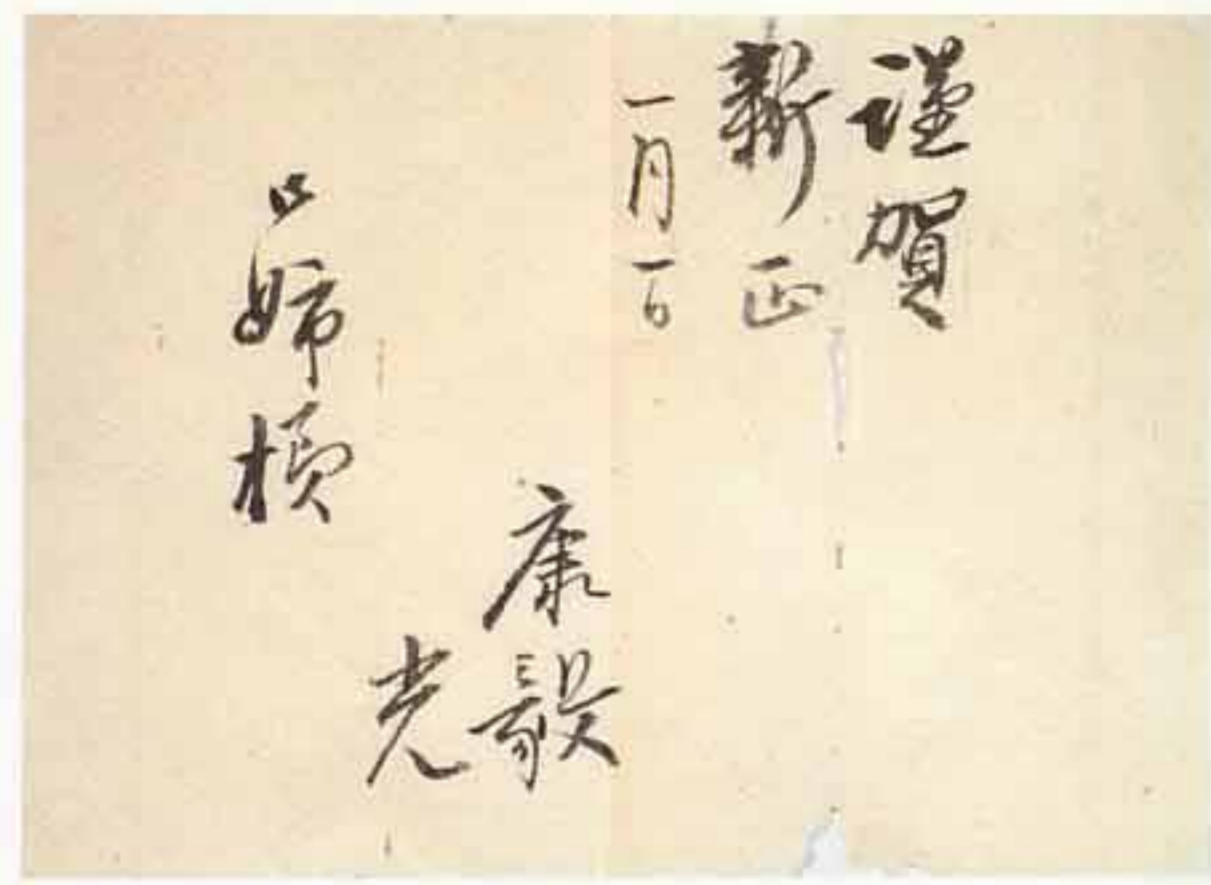 謹賀
新正
一月一日
康毅
光
御姉様